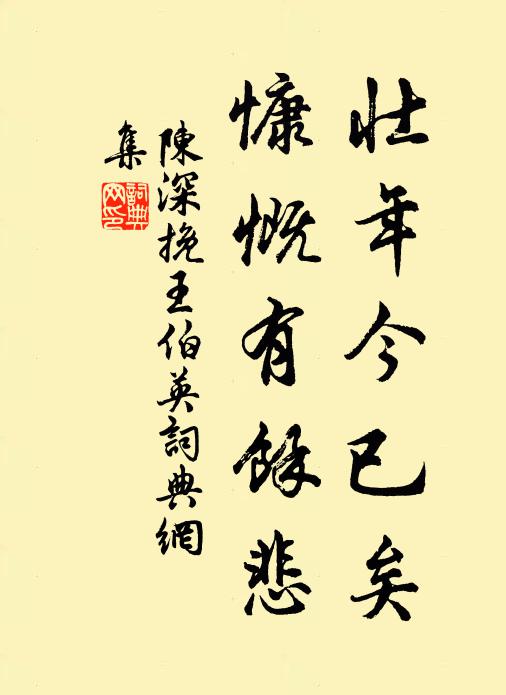 壯年今已矣
慷慨有餘悲
陳深挽王伯英詞典網
集
詞典
网印